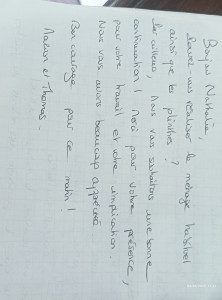 Bonjour Nathalie,
Pouvez-vous réaliser le ménage habituel
ainsi que les plinthes ?
Par ailleurs, nous vous souhaitons une bonne
continuation ! Merci pour votre présence,
pour votre travail et votre implication.
Nous vous avons beaucoup appréciée.
Bon courage pour ce matin !
et Thomas.